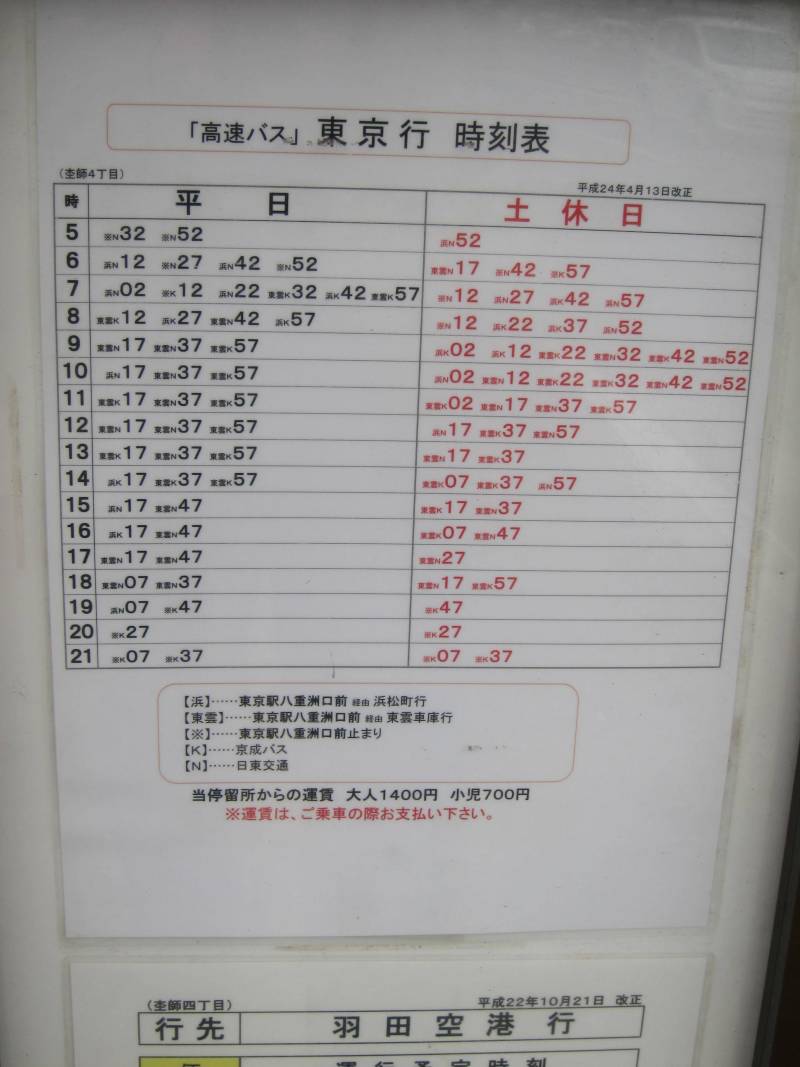 「高速バス」 東京行 時刻表
(杢師4丁目)
平成24年4月13日改正
時 平日 土休日
5 ※N32 ※N52 浜N52
6 浜N12 ※N27 浜N42 ※N52 東雲N17 ※N42 ※K57
7 浜N02 ※K12 浜N22 東雲K32 浜K42 東雲K57 ※N12 浜N27 浜K42 浜N57
8 東雲K12 浜K27 東雲N42 浜K57 ※N12 浜K22 浜K37 浜N52
9 東雲N17 東雲N37 東雲K57 浜K02 浜K12 東雲K22 東雲N32 東雲K42 東雲N52
10 浜N17 東雲N37 東雲K57 浜N02 東雲N12 東雲K22 東雲K32 東雲N42 東雲N52
11 東雲K17 東雲N37 東雲K57 東雲K02 東雲N17 東雲N37 東雲K57
12 東雲N17 東雲N37 東雲K57 浜N17 東雲K37 東雲N57
13 東雲K17 東雲N37 東雲K57 東雲N17 東雲K37
14 浜K17 東雲K37 東雲K57 東雲K07 東雲K37 浜N57
15 浜N17 東雲N47 東雲K17 東雲N37
16 浜K17 東雲N47 東雲K07 東雲N47
17 東雲N17 東雲N47 東雲N27
18 東雲N07 東雲N37 東雲N17 東雲K57
19 浜N07 ※K47 ※K47
20 ※K27 ※K27
21 ※K07 ※K37 ※K07 ※K37
【浜】……東京駅八重洲口前 経由 浜松町行
【東雲】……東京駅八重洲口前 経由 東雲車庫行
【※】……東京駅八重洲口前止まり
【K】……京成バス
【N】……日東交通
当停留所からの運賃 大人1400円 小児700円
※運賃は、ご乗車の際お支払い下さい。
(杢師四丁目)
平成22年10月21日 改正
行先 羽田空港行
運行予定時刻